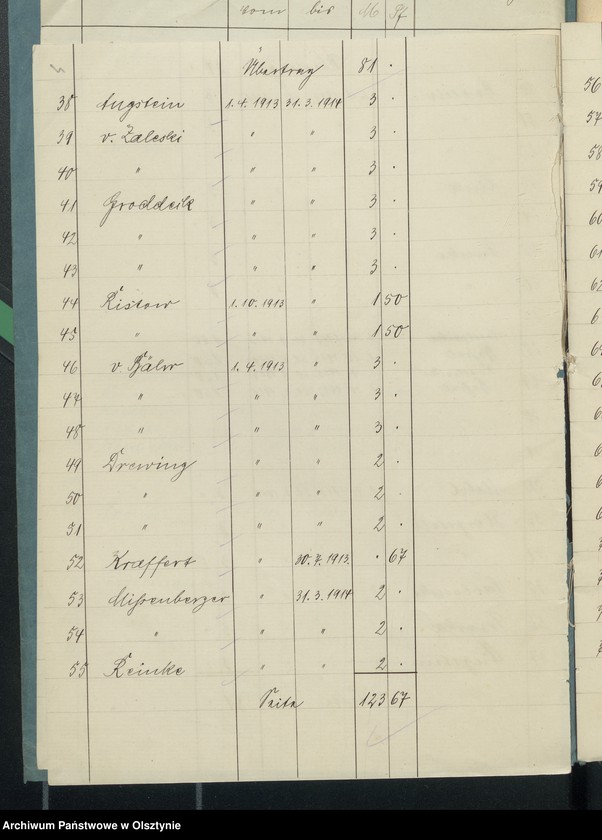 vom bis M Pf
Übertrag 81 .
38 Augstein 1.4.1913 31.3.1914 3 .
39 v. Zaleski " " 3 .
40 " " " 3 .
41 Groddeck " " 3 .
42 " " " 3 .
43 " " " 3 .
44 Ristow 1.10.1913 " 1 50
45 " " " 1 50
46 v. 1.4.1913 " 3 .
47 " " " 3 .
48 " " " 3 .
49 Drewing " " 2 .
50 " " " 2 .
51 " " " 2 .
52 Kraeffert " 30.7.1913. . 67
53 Mißenberger " 31.3.1914 2 .
54 " " " 2 .
55 Reinke " " 2 .
Seite 123 67
56
57
58
59
60
61
62
Archiwum Państwowe w Olsztynie